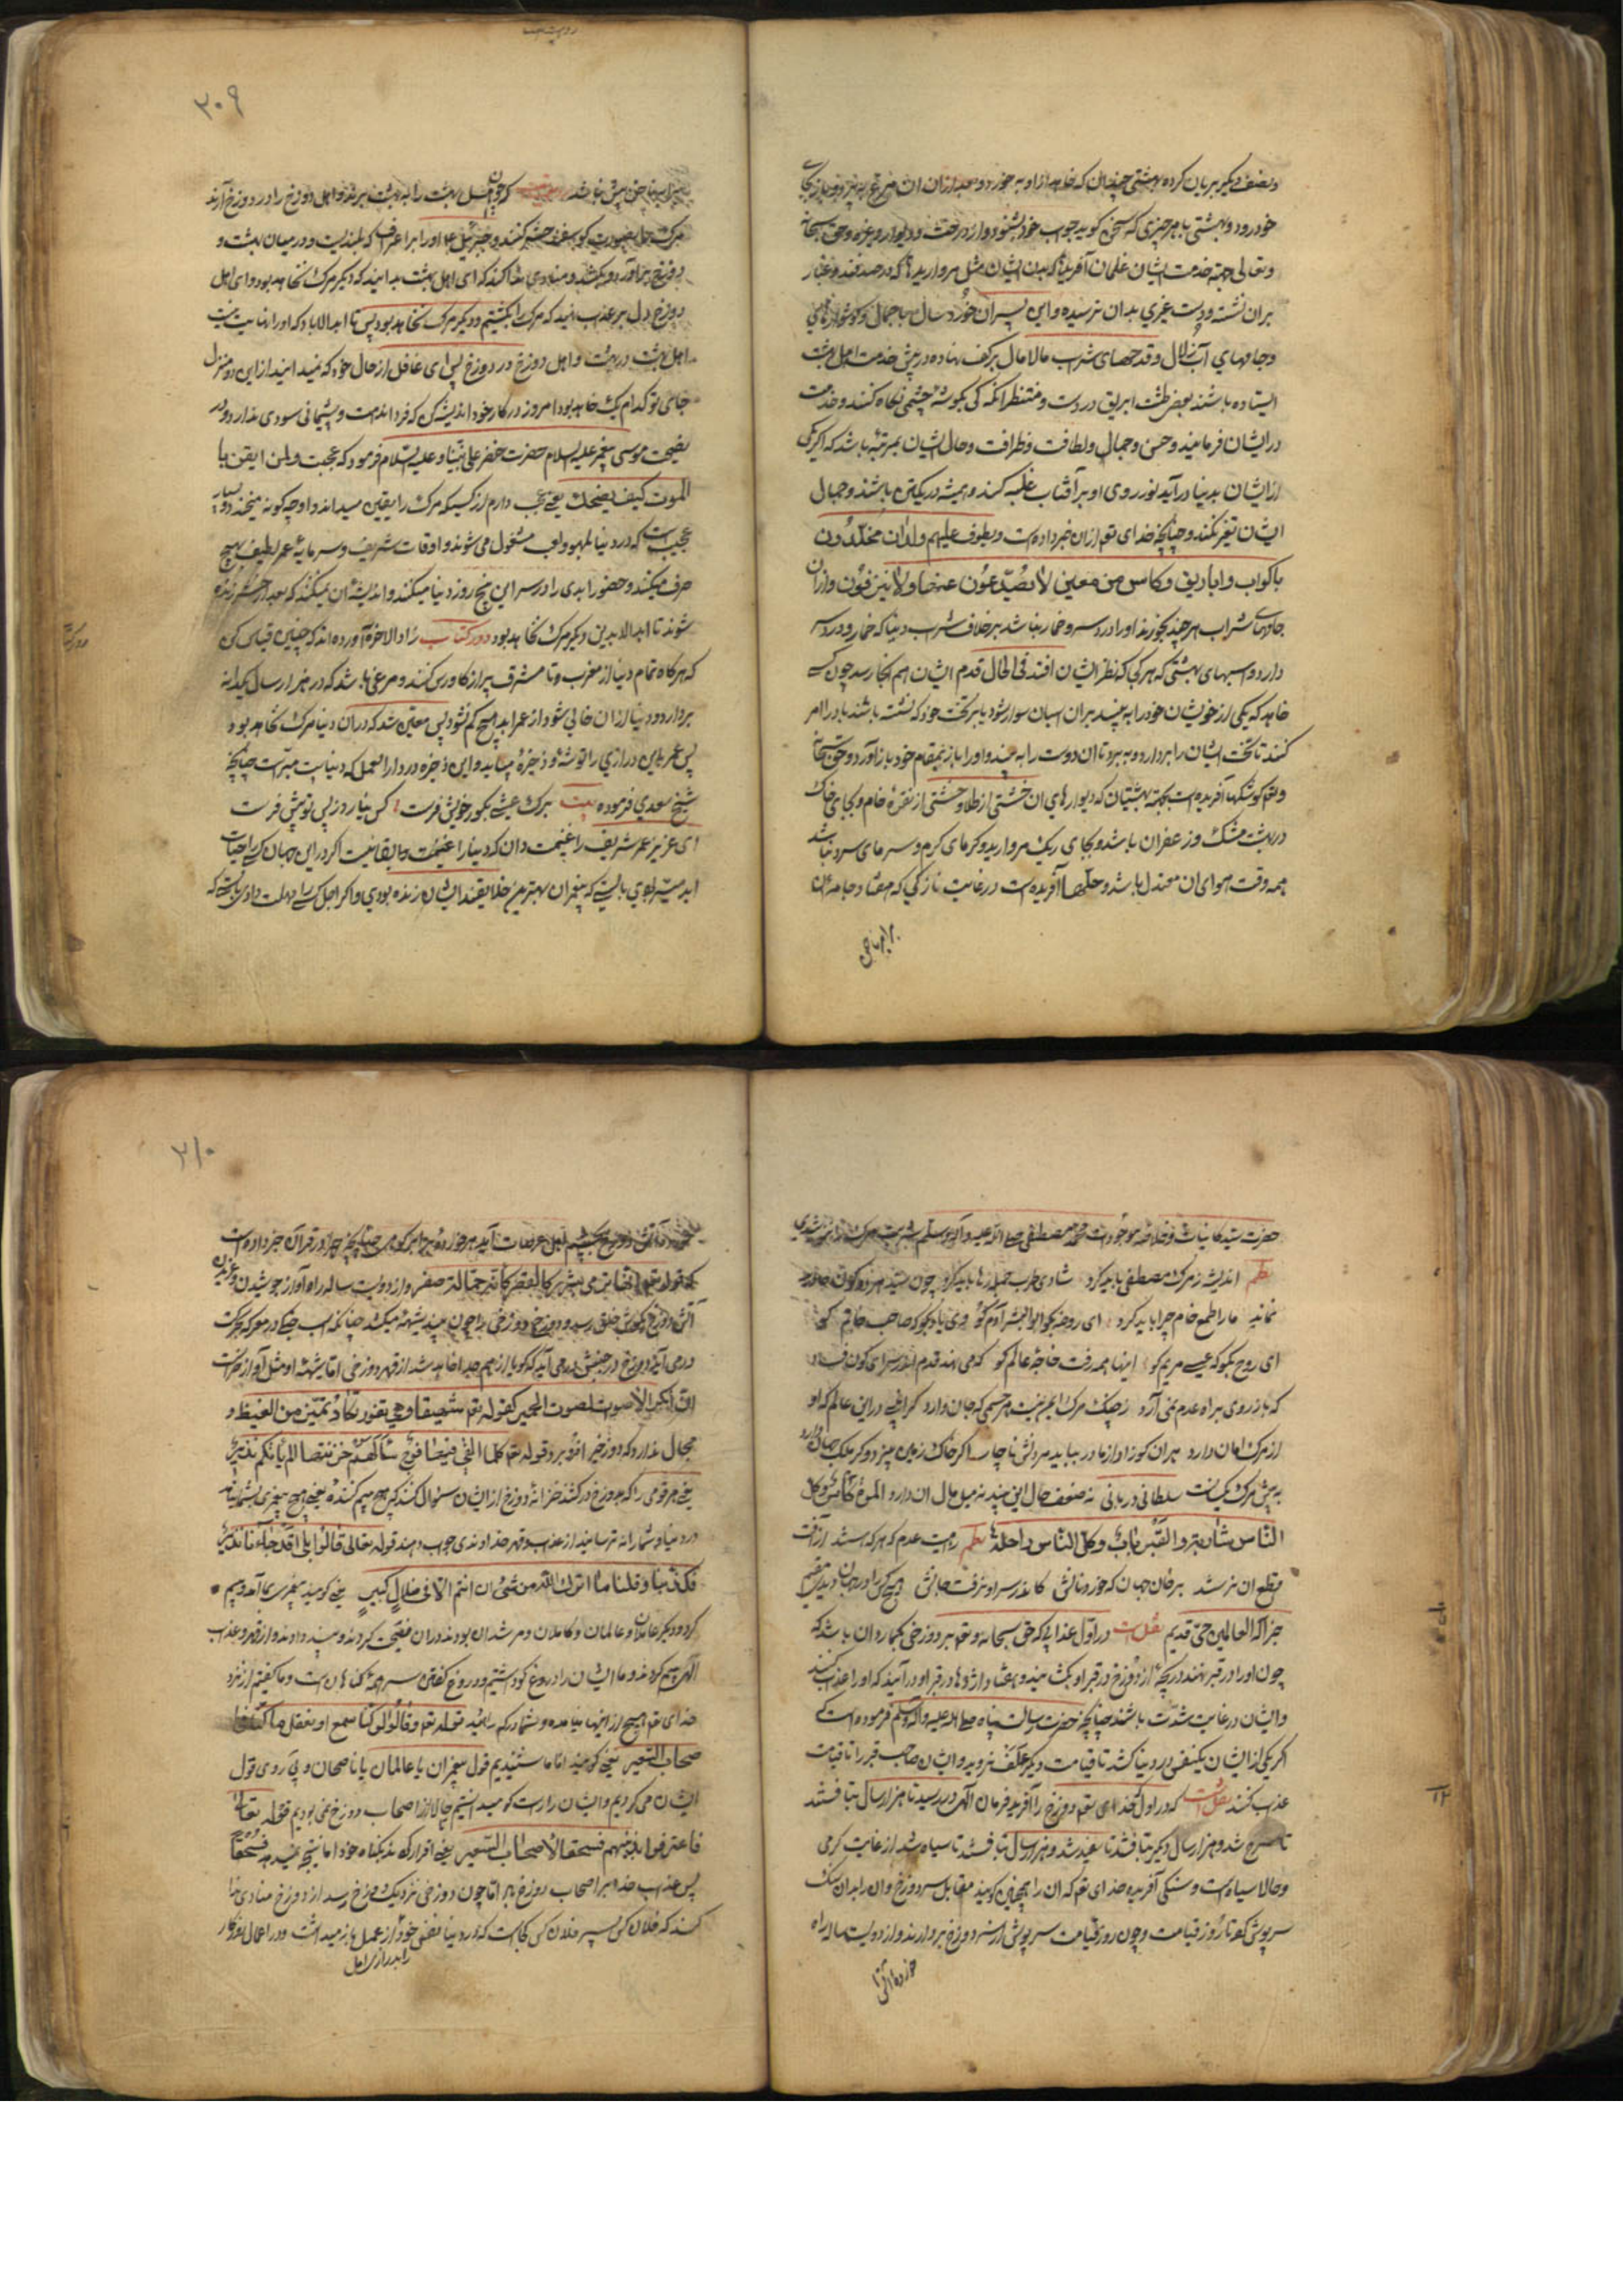 ونصف دیگر بریان کرده بهشتی چندان که خاهد ازاو به خورد و بعد ازان ان مرغ
خود رود و بهشتی با هر چیزی که سخن کوید جواب خود بشنود و از درخت و دیوار و غرفه و حق سبحانه
وتعالی جهة خدمت ایشان غلمان آفریده که بدن ایشان مثل مرواریدها که در صدف غبار
بران نشسته و دست غیری بدان نرسیده و این پسران خورد سال با جمال و کوشوارهای
وجامهای آب زلال و قدحهای شراب مالامال بر کف نهاده در پیش خدمت اهل بهشت
ایستاده باشند بعض طشت ابریق در دست و منتظر انکه کی بگوشه چشمی نگاه کنند و خدمت
در ایشان فرمایند و حسن و جمال و لطافت و ظرافت و حال ایشان بمرتبه باشد که اگر یکی
از ایشان بدنیا در آید نور روی او بر آفتاب غلبه کند و همیشه در یکتن باشند و جمال
ایشان تغیر نکند و چنانچه خدای تعم ازان خبر داده است و یطوف علیهم ولدان مخلدون
باکواب و اباریق و کاس من معین لا یصدعون عنها و لا ینزفون و ازان
جامهای شراب هر چند بخورند اورا درد سر و خمار نباشد بر خلاف شراب دنیا که خمار و درد سر
دارد و اسبهای بهشتی که هر کجا که نظر ایشان افتد فی الحال قدم ایشان هم انجا رسد چون کسی
خاهد که یکی از خویشان خود را به بیند بران اسبان سوار شود یا بر تخت خود که نشسته باشد باد را امر
کنند تا تخت ایشان را بردارد و به برد تا ان دوست را به بیند و اورا باز بمقام خود باز آورد و حق سبحانه
وتعم کوشکها آفریده است بجهة بهشتیان که دیوارهای ان خشتی از طلا و خشتی از نقره خام و بجای خاک
در بهشت مشک و زعفران باشد و بجای ریگ مروارید و گرمای گرم و سرمای سرد نباشد
همه وقت هوای ان معتدل باشد و حلها آفریده است در غایت نازکی که هفتاد جامه ازان
که چون اهل بهشت را به بهشت برند و اهل دوزخ را در دوزخ آرند
مرک را بصورت کوسفند حشر کنند و جبرئیل اورا بر اعراف که بلندیست و در میان بهشت و
دوزخ بر اورد و بکشد و منادی ندا کند که ای اهل بهشت بدانید که دیگر مرک نخاهد بود و ای اهل
دوزخ دل بر عذاب نهید که مرک را بکشتیم و دیگر مرک نخاهد بود پس تا ابد الاباد که اورا نهایت نیست
اهل بهشت در بهشت و اهل دوزخ در دوزخ پس ای غافل از حال خود که نمیدانید از این دو منزل
جای تو کدام یک خاهد بود امروز در کار خود اندیشه کن که فردا ندامت و پشیمانی سودی ندارد و در
نصیحت موسی پیغمبر علیه السلام حضرت خضر علی نبینا و علیه السلام فرمود که عجبت و لمن ایقن با
الموت کیف یضحک یعنی عجب دارم از کسی که مرک را یقین میداند و او چه کونه میخندد و بسیار
عجیب است که در دنیا لهو و لعب مشغول می شوند و اوقات شریف و سرمایهٔ عمر لطیف بهیچ
صرف میکنند و حضور ابدی را در سر این پنج روز دنیا میکنند و اندیشه ان نمیکنند که بعد از حشر زنده
شوند تا ابد الابدین دیگر مرک نخاهد بود و در کتاب زاد الاخره آورده اند که چنین قیاس کن
که هرگاه تمام دنیا از مغرب و تا مشرق پر از گاورس کنند و مرغی باشد که در هزار سال یکدانه
بردارد و دنیا از ان خالی شود از عمر ابد هیچ کم نشود پس معین شد که دران دنیا مرک نخاهد بود
پس عمر باین درازی را توشهٔ و ذخیرهٔ میباید و این ذخیره در دار العمل که دنیاست میسّر است چنانچه
شیخ سعدی فرموده بیت برک عیشی بگور خویش فرست کس نیارد ز پس تو پیش فرست
ای عزیز عمر شریف را غنیمت دان که دنیا را غنیمت و بقا نیست اگر در این جهان کس را حیات
ابد میسّر بودی بایستی که پیغمبران بهترین خلایقند ایشان زنده بودی و اگر اجل کسی را مهلت دادی بایستی که
۳۰۹
حضرت سید کاینات و خلاصه موجودات محمد مصطفی صلی الله علیه و آله وسلم شربت مرک نچشیدی
نظم اندیشه ز مرک مصطفی باید کرد شادی و طرب جمله رها باید کرد چون سید هر دو کون جاوید
نماند ما را طمع خام چرا باید کرد ای روضه بگو ابوالبشر آدم کو وی باد بگو که صاحب خاتم کو
ای روح بگو که عیسی مریم کو اینها همه رفت خاجهٔ عالم کو که می نهد قدم اندر سرای کون فساد
که باز روی براه عدم نمی آرد ز چنگ مرک امیر نیست هر جسمی که جان دارد کرا بینی در این عالم که او
از مرک امان دارد هر ان کو زاد از مادر بباید مردنش ناچار اگر خاک زمین بیزد و گر ملک جهان دارد
به پیش مرک یکسانست سلطانی و دربانی نه ضعف حال این بیند نه میل مال ان دارد الموت کاس و کل
الناس شاربه و القبر باب و کل الناس داخله نظم زیست عدم که هر که هستند از آفت
قطع ان نرستند بر خان جهان که خورد نانش کاندر سر او نرفت جانش هیچ کس را در جهان ندیدیم مقیم
جز اله العالمین حیّ قدیم نقلست در اوّل عذابی که حق سبحانه و تعم بر دوزخی بگماردان باشد که
چون اورا در قبر نهند دریچهٔ از دوزخ در قبر او بکشایند و هفتاد اژدها در قبر او در آیند که اورا عذاب کنند
وایشان در غایت شدّت باشند چنانچه حضرت رسالت پناه صلی الله علیه و آله وسلم فرموده است که
اگر یکی از ایشان یکنفس در دنیا کشد تا قیامت دیگر علف نروید و ایشان صاحب قبر را تا قیامت
عذاب کنند نقلست که در اول که خدای تعم دوزخ را آفرید فرمان الهی در رسید تا هزار سال بتافتند
تا سرخ شد و هزار سال دیگر بتافتند تا سفید شد و هزار سال بتافتند تا سیاه شد از غایت گرمی
وحالا سیاه است و سنگی آفریده خدای تعم که ان را سجین گویند مقابل سر دوزخ و ان را بدان سنگ
سرپوش کرد تا روز قیامت و چون روز قیامت سرپوش از سر دوزخ بردارند و از دویست ساله راه
۳۱۰
اتش دوزخ بچشم اهل عرصات آید هر خورده برابر کوهی چنانچه در قرآن خبر داده است
که قوله تعم انها ترمی بشرر کالقصر کانه جمالت صفر و از دویست ساله راه آواز جوشیدن و غریدن
آتش دوزخ بگوش خلق رسد و دوزخ دوزخی را چون بیند شیهه میکشد چنانکه اسب جنگی در معرکه حرکت
در می آید دوزخ در جنبش در می آید که گویا از هم جدا خاهد شد از قهر دوزخی اما شهقهٔ او مثل آواز خر است
ان انکر الاصوات لصوت الحمیر کقوله تعم شهیقا و هی تفور تکاد تمیز من الغیظ و
مجال ندارد که دوزخی افزو برد قوله تعم کلما القی فیها فوج سالهم خزنتها الم یاتکم نذیر
یعنی هر قومی را که بدوزخ در کشند خزانهٔ دوزخ از ایشان سئوال کنند که هیچ بیم کننده یعنی هیچ پیغمبری بشما نیامد
در دنیا و شما را نه ترسانید از عذاب و قهر خداوندی جواب دهند قوله تعالی قالوا بلی قد جاءنا نذیر
فکذبنا و قلنا ما انزل الله من شئ ان انتم الا فی ضلال کبیر یعنی گویند پیغمبری بما آمد و بیم
کرد و دیگر عالمان و کاملان و مرشدان بودند و ران نصیحت کردند و پند دادند و از قهر و عذاب
الهی بیم کردند و ما ایشان را دروغ گو داشتیم و دروغ گفتن سر همه گناهان است و ما گفتیم از نزد
خدای تعم هیچ از اینها نیامده و شما در کم راهید قوله تعم و قالوا لو کنا نسمع او نعقل ما کنا فی
اصحاب السعیر یعنی گویند اما ما شنیدیم قول پیغمبران یا عالمان یا ناصحان و پی روی قول
ایشان می کردیم و ایشان را راست گو میدانستیم حالا از اصحاب دوزخ نمی بودیم قوله تعالی
فاعترفوا بذنبهم فسحقا لاصحاب السعیر یعنی اقرار کردند بگناه خود اما نتیجه نمیدهد فسحقا
پس عذاب خدا بر اصحاب دوزخ باد اما چون دوزخی نزدیک دوزخ رسد از دوزخ منادی ندا
کند که فلان کس پسر فلان کس کجاست که در دنیا نفس خود را از عمل باز میداشت و در اعمال